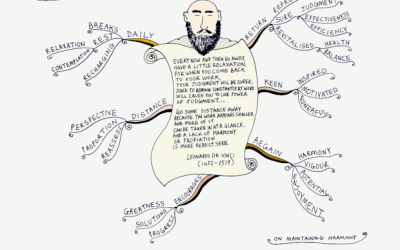 BREAKS
REST
RELAXATION
CONTEMPLATION
RECHARGING
DAILY
RETURN
SURE JUDGMENT
EFFECTIVENESS
EFFICIENCY
REVITALISES
HEALTH
BALANCE
EVERY NOW AND THEN GO AWAY
HAVE A LITTLE RELAXATION,
FOR WHEN YOU COME BACK
TO YOUR WORK,
YOUR JUDGMENT WILL BE SURER;
SINCE TO REMAIN CONSTANTLY AT WORK
WILL CAUSE YOU TO LOSE POWER
OF JUDGMENT...
GO SOME DISTANCE AWAY
BECAUSE THE WORK APPEARS SMALLER
AND MORE OF IT
CAN BE TAKEN IN AT A GLANCE,
AND A LACK OF HARMONY
OR PROPORTION
IS MORE READILY SEEN.
LEONARDO DA VINCI
(1452-1519)
KEEN
INSPIRED
MOTIVATED
POWERFUL
PERSPECTIVE
PROPORTION
REASSESS
DISTANCE
REGAIN
HARMONY
VIGOUR
POTENTIAL
ENJOYMENT
GREATNESS
SOLUTIONS
PROGRESS
ENCOURAGES
ON MAINTAINING HARMONY